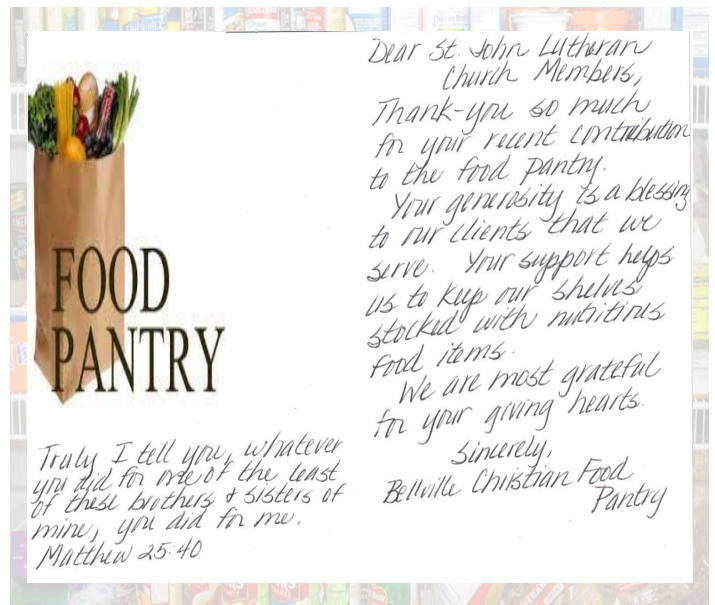 FOOD
PANTRY
Truly I tell you, whatever
you did for one of the least
of these brothers & sisters of
mine, you did for me.
Matthew 25:40
Dear St. John Lutheran
Church Members,
Thank-you so much
for your recent contribution
to the food pantry.
Your generosity is a blessing
to our clients that we
serve. Your support helps
us to keep our shelves
stocked with nutritious
food items.
We are most grateful
for your giving hearts.
Sincerely,
Bellville Christian Food
Pantry